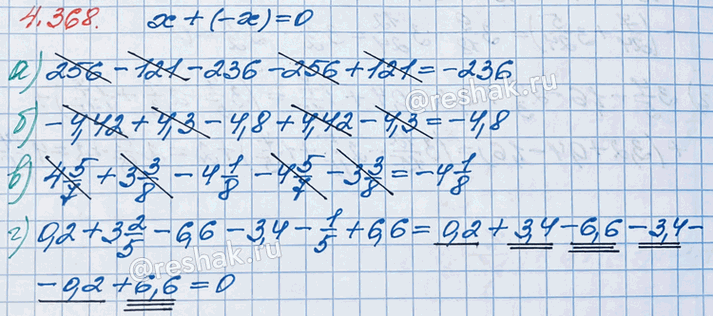 4.368. x + (-x) = 0
а) 256 - 121 - 236 - 256 + 121 = -236
б) -4,42 + 4,3 - 4,8 + 4,42 - 4,3 = -4,8
в) 4 5/7 + 3 3/8 - 4 1/8 - 4 5/7 - 3 3/8 = -4 1/8
г) 0,2 + 3 2/5 - 6,6 - 3,4 - 1/5 + 6,6 = 0,2 + 3,4 - 6,6 - 3,4 -
- 0,2 + 6,6 = 0
@reshak.ru
@reshak.ru